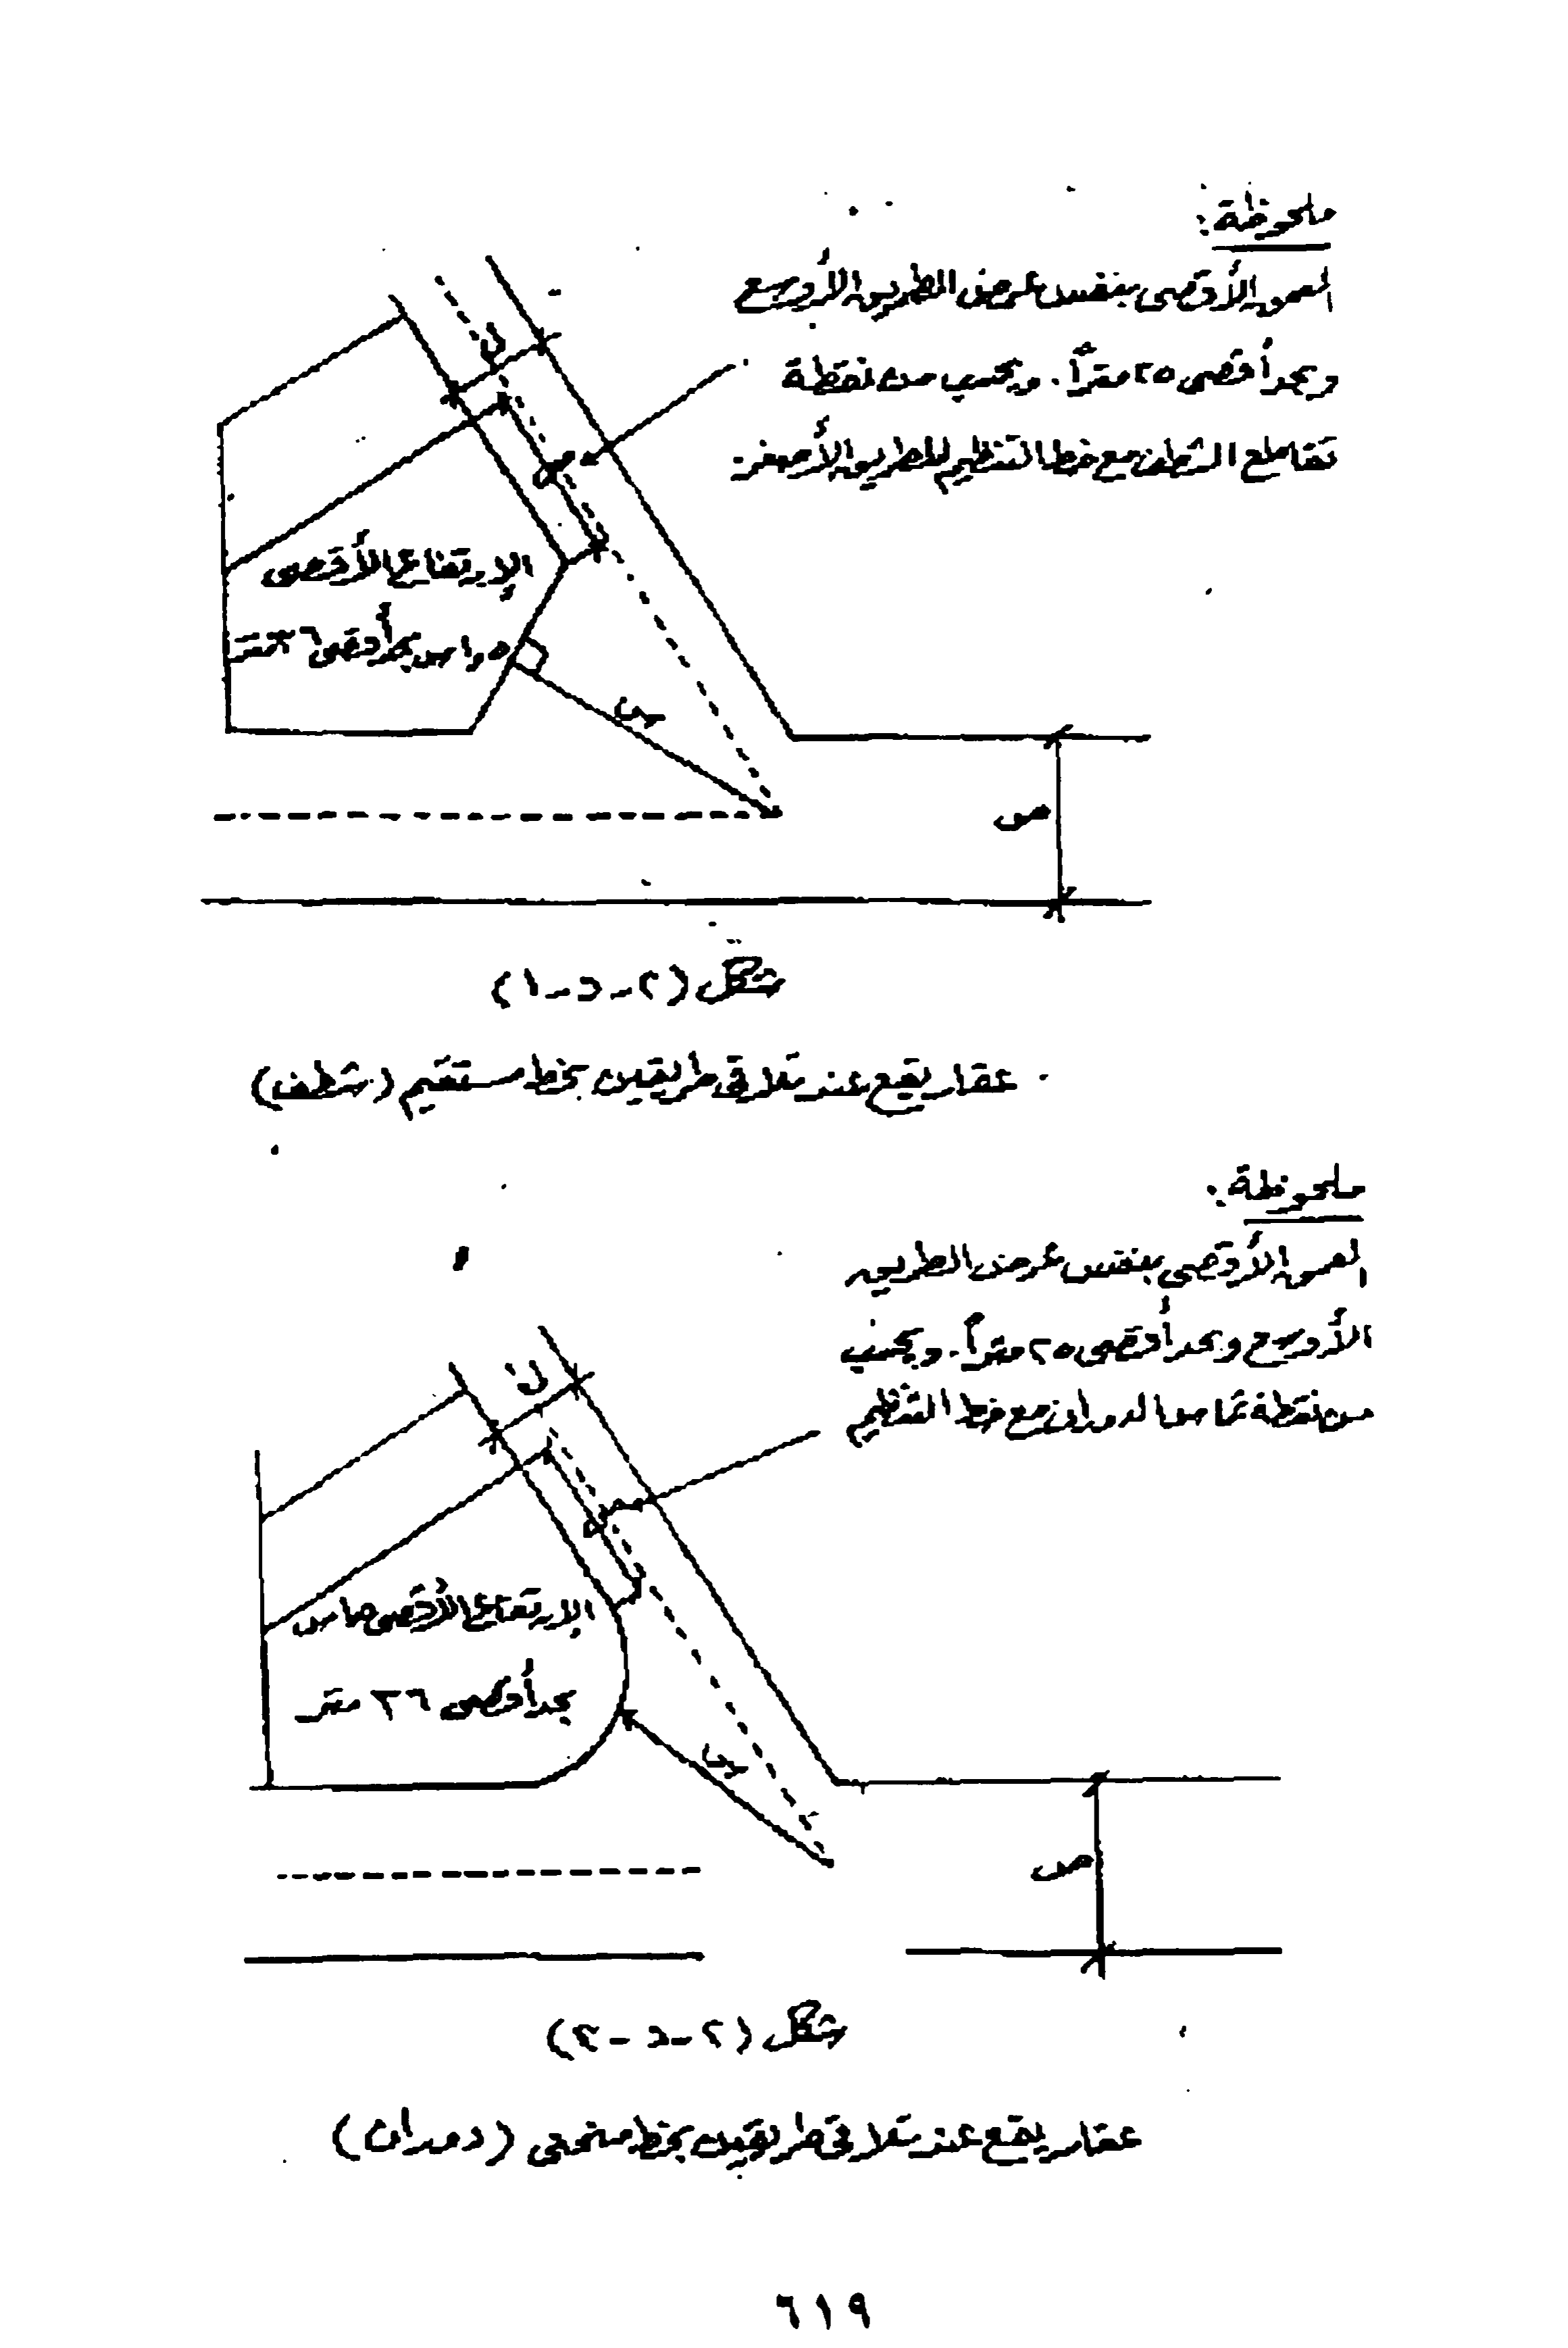 ملحوظة :
العمق الأقصى بنفس عرض الطريق الأوسع
وبحد أقصى ٢٥ متراً . ويحسب من نقطة
تقاطع الشطف مع خط التنظيم للطريق الأصغر .
ن
ص
الإرتفاع الأقصى
٥ر١ س بحد أقصى ٣٦ متر
س
ص
شكل (٢-د-١)
عقار يقع عند تلاقى طريقين بخط مستقيم (شطف)
ملحوظة :
العمق الأقصى بنفس عرض الطريق
الأوسع وبحد أقصى ٢٥ متراً . ويحسب
من نقطة تماس الدوران مع خط التنظيم
ن
ص
الإرتفاع الأقصى س
بحد أقصى ٣٦ متر
س
ص
شكل (٢-د-٢)
عقار يقع عند تلاقى طريقين بخط منحنى (دوران)
٦١٩